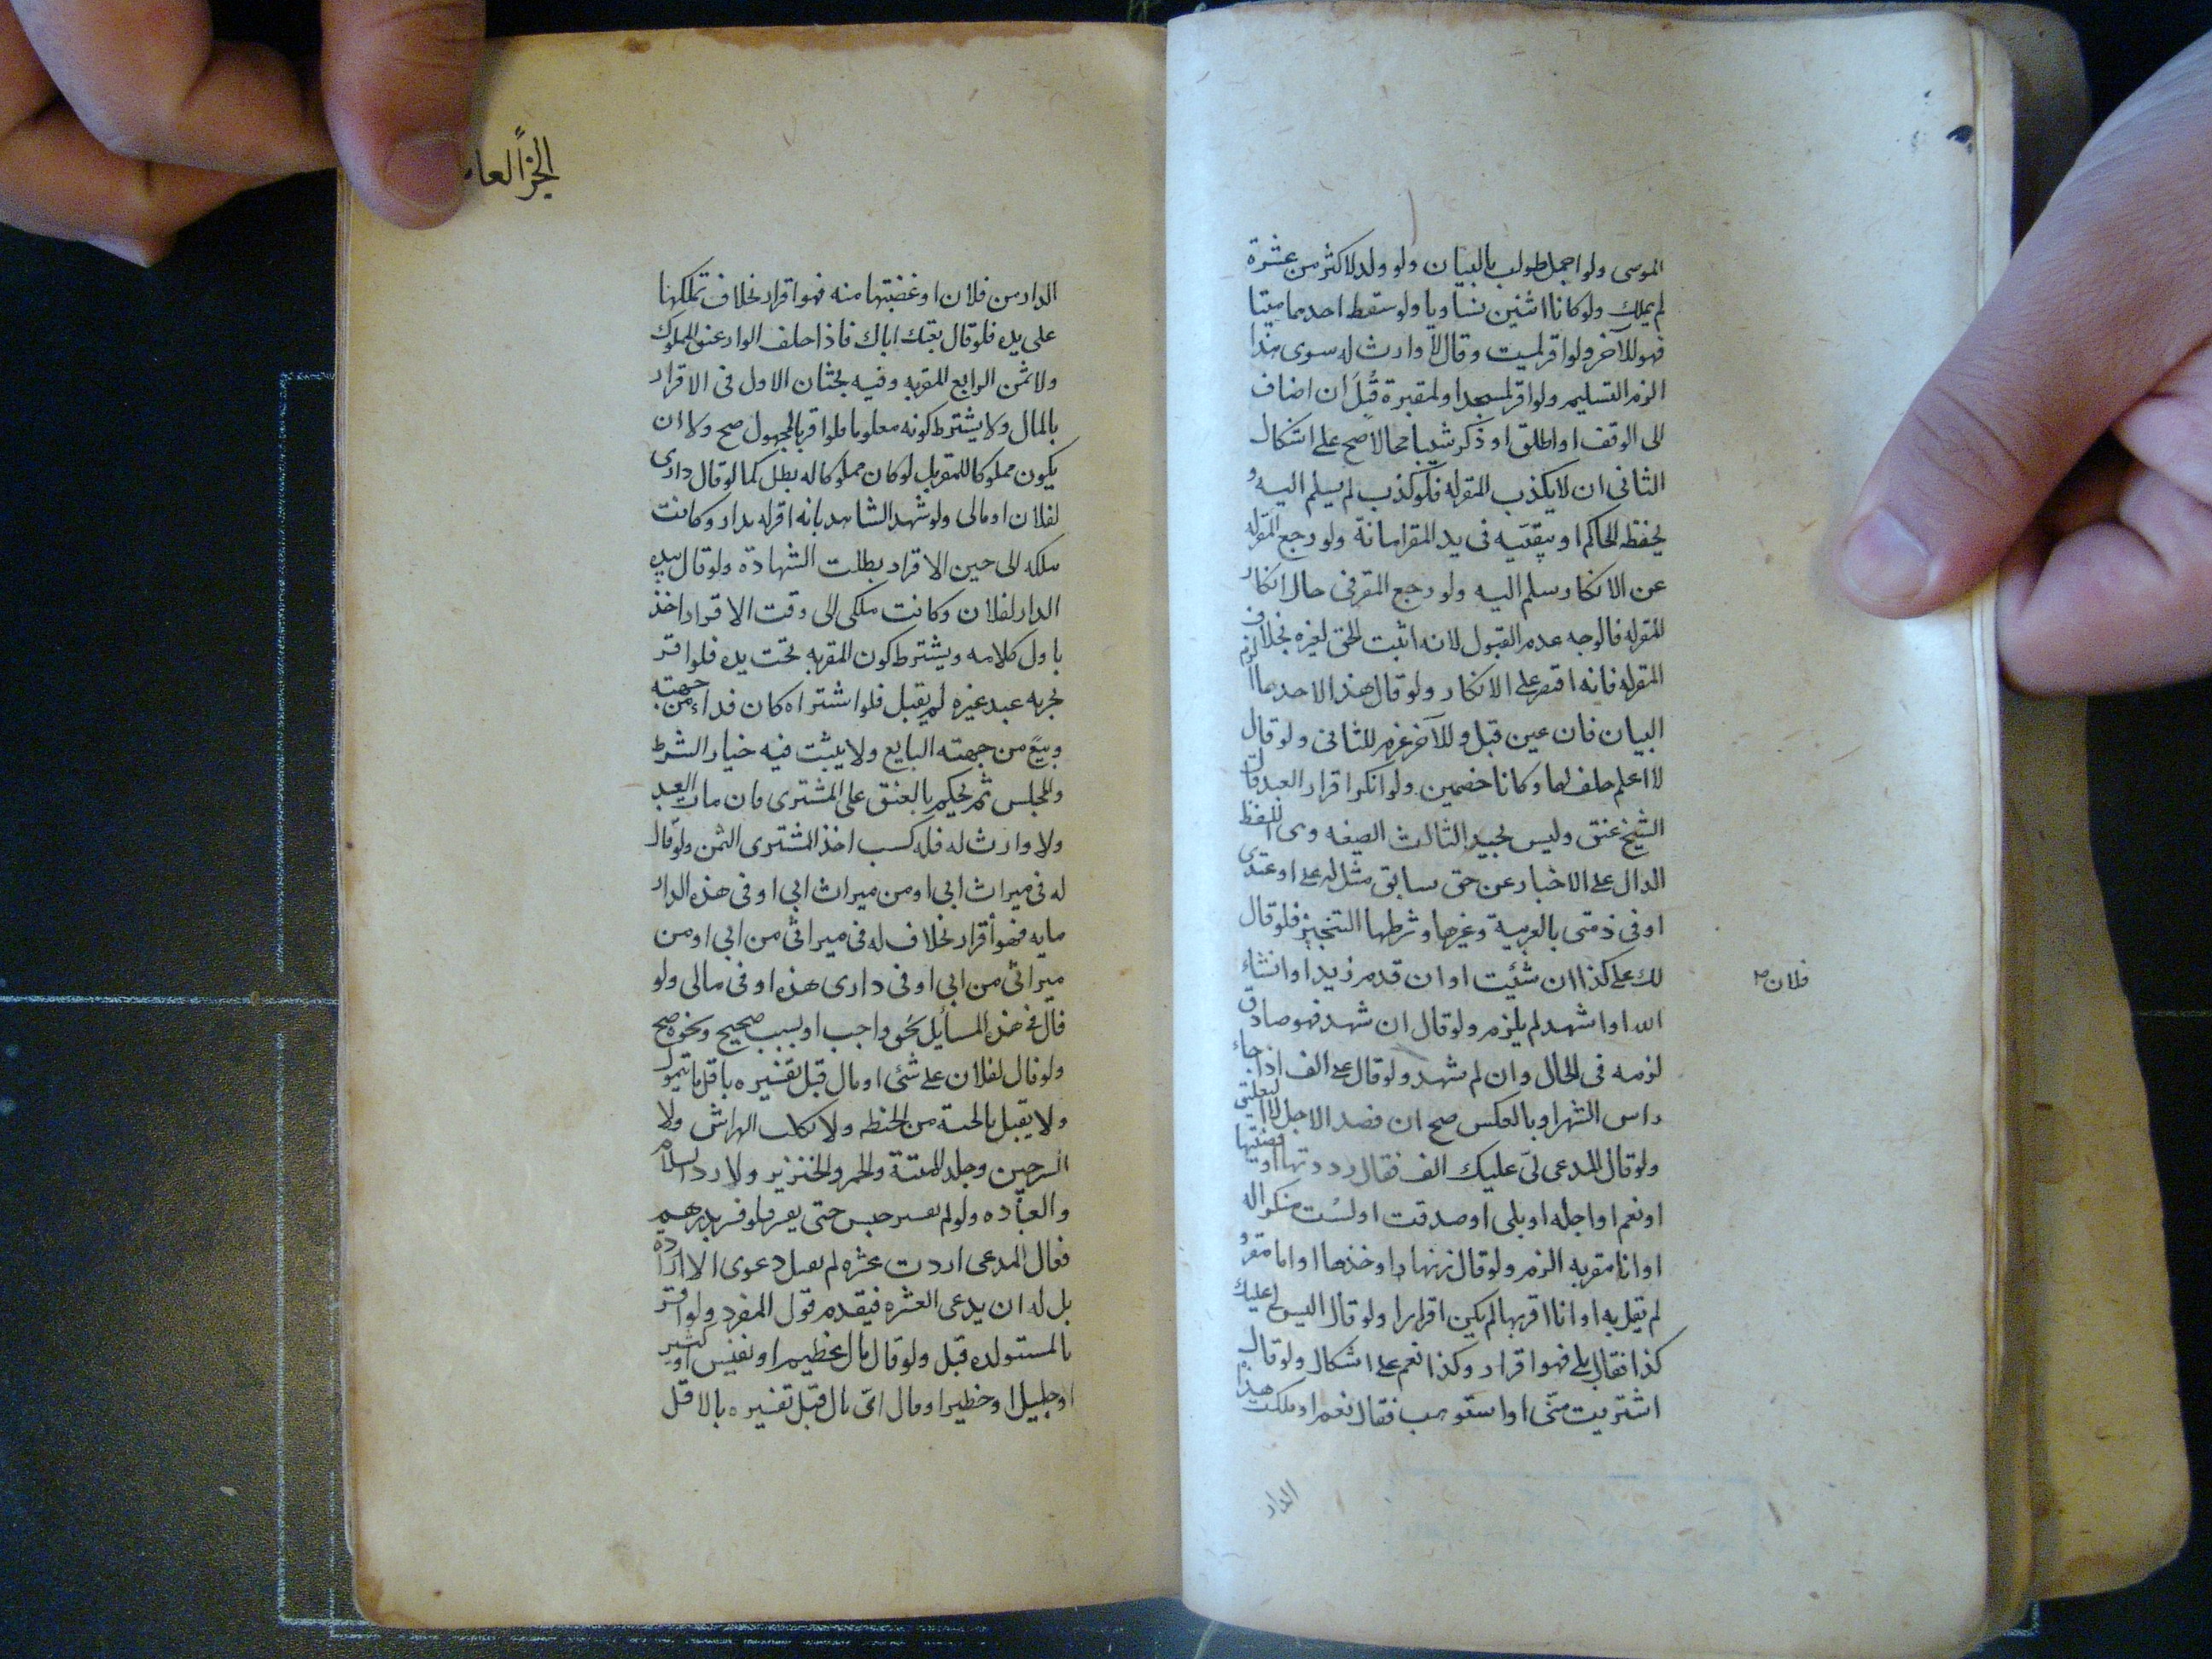 الموصى ولو اجمل طولب بالبيان ولو ولد لاكثر من عشرة
لم يملك ولو كانا اثنين تساويا ولو سقط احدهما ميتا
فهو للآخر ولو اقر لميت وقال لا وارث له سوى هذا
الزم التسليم ولو اقر لمسجد او لمقبرة قُبِلَ ان اضاف
الى الوقف او اطلق او ذكر سببا محالا صح على اشكال
الثانى ان لا يكذب المقر له فلو كذب لم يسلم اليه و
يحفظه الحاكم او يبقيه فى يد المقر امانة ولو رجع المقر له
عن الانكار سلم اليه ولو رجع المقر فى حال انكار
المقر له فالوجه عدم القبول لانه اثبت الحق لغيره بخلاف
المقر له فانه اقتصر على الانكار ولو قال هذا لاحدهما الزم
البيان فان عين قبل وللآخر غرم للثانى ولو قال
لا اعلم حلف لهما وكانا خصمين ولو انكر اقرار العبد قال
الشيخ عتق وليس بجيد الثالث الصيغه وهى اللفظ
الدال على الاخبار عن حق سابق مثل له على او عندى
او فى ذمتى بالعربية وغيرها وشرطها التنجيز فلو قال
لك على كذا ان شئيت او ان قدم زيد او انشاء
فلان
الله او اشهد لم يلزم ولو قال ان شهد فهو صادق
لزمه فى الحال وان لم شهد ولو قال على الف اذا جاء
راس الشهر او بالعكس صح ان قصد الاجل لا التعليق
ولو قال المدعى لى عليك الف فقال رددتها او قضيتها
او نعم او اجله او بلى او صدقت او لست منكرا له
او انا مقر به الزم ولو قال زنها او خذها او انا مقر و
لم يقل به او انا اقر بها لم يكن اقرارا ولو قال اليس لى عليك
كذا فقال بلى فهو اقرار وكذا نعم على اشكال ولو قال
اشتريت منى او استوهب فقال نعم او ملكت هذه
الدار
الجزأ العا
الدار من فلان او غصبتها منه فهو اقرار بخلاف تملكها
على يده فلو قال بعتك اباك فاذا حلف الولد عتق المملوك
ولا ثمن الرابع المقر به وفيه بحثان الاول فى الاقرار
بالمال ولا يشترط كونه معلوما فلو اقر بالمجهول صح ولا ان
يكون مملوكا للمقر بل لو كان مملوكا له بطل كما لو قال دارى
لفلان او مالى ولو شهد الشاهد بانه اقر له بدار وكانت
ملكه الى حين الاقرار بطلت الشهادة ولو قال هذه
الدار لفلان وكانت ملكى الى وقت الاقرار اخذ
باول كلامه ويشترط كون المقر به تحت يده فلو اقر
بحريه عبد غيره لم يقبل فلو اشتراه كان فداء من جهته
وبيع من جهته البايع ولا يثبت فيه خيار الشرط
والمجلس ثم يحكم بالعتق على المشترى فان مات العبد
ولا وارث له فله كسب اخذ المشترى الثمن ولو قال
له فى ميراث ابى او من ميراث ابى او فى هذه الدار
مايه فهو أقرار بخلاف له فى ميراثى من ابى او من
ميراثى من ابى او فى دارى هذه او فى مالى ولو
قال فى هذه المسائل بحق واجب او بسبب صحيح ونحوه صح
ولو قال لفلان على شئ او مال قبل تفسيره باقل ما يتمول
ولا يقبل بالحبة من الحنطه ولا بكلب الهراش ولا
السرجين وجلد الميتة والخمر والخنزير ولا رد السلام
والعيادة ولو لم يفسر حبس حتى يفسر فلو فسر بدرهم
فقال المدعى اردت عشره لم يقبل دعوى الارادة
بل له ان يدعى العشره فيقدم قول المقر ولو اقر
بالمستولده قبل ولو قال مال عظيم او نفيس او كثير
او جليل او خطير او مال اى مال قبل تفسيره بالاقل